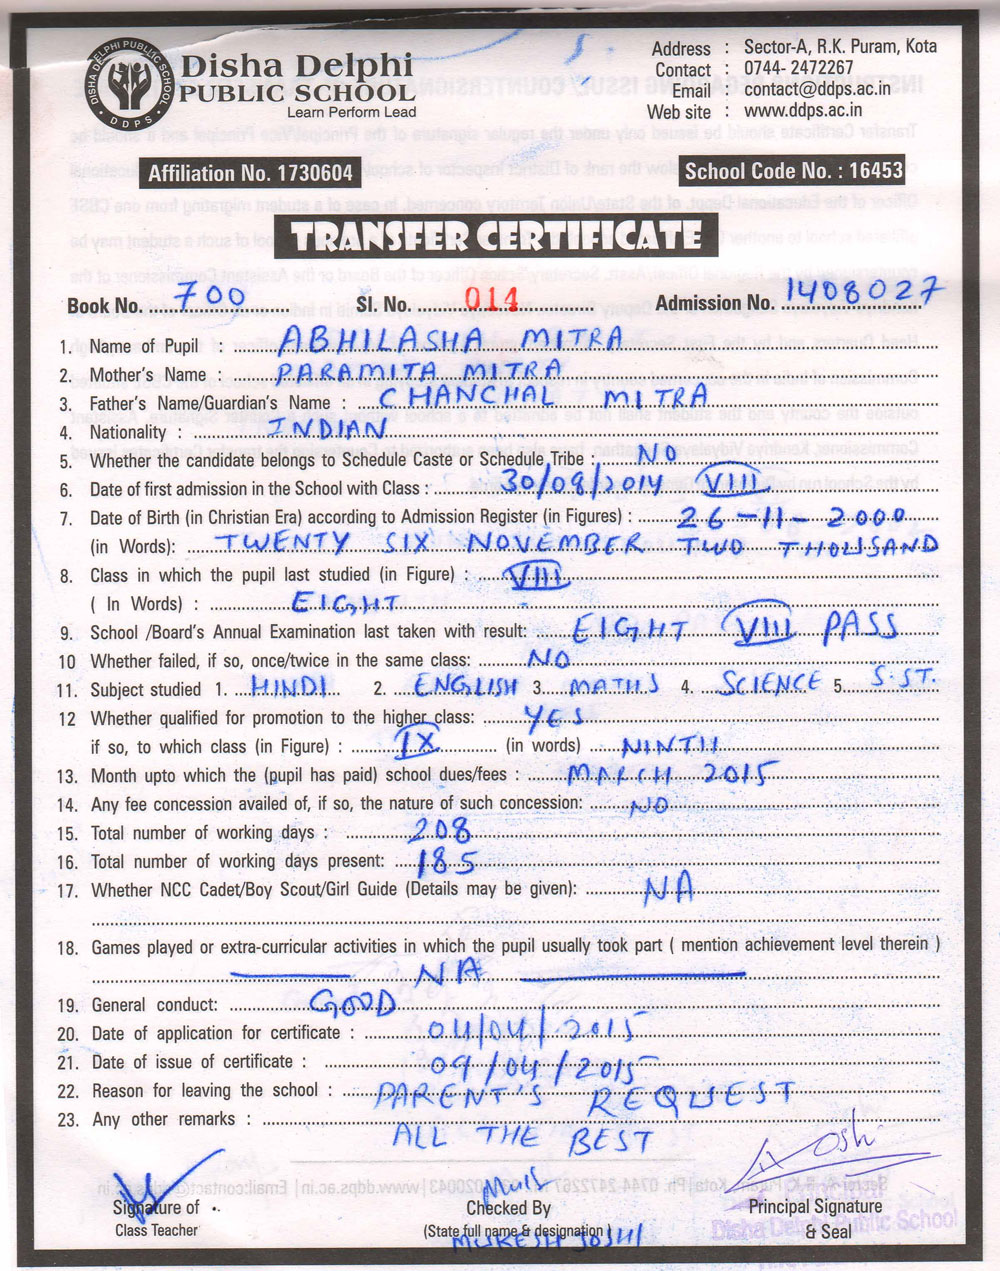 Disha Delphi
PUBLIC SCHOOL
Learn Perform Lead
DISHA DELPHI PUBLIC SCHOOL
DDPS
Address : Sector-A, R.K. Puram, Kota
Contact : 0744- 2472267
Email : contact@ddps.ac.in
Web site : www.ddps.ac.in
Affiliation No. 1730604
School Code No. : 16453
TRANSFER CERTIFICATE
Book No. 700 Sl. No. 014 Admission No. 1408027
1. Name of Pupil : ABHILASHA MITRA
2. Mother's Name : PARAMITA MITRA
3. Father's Name/Guardian's Name : CHANCHAL MITRA
4. Nationality : INDIAN
5. Whether the candidate belongs to Schedule Caste or Schedule Tribe : NO
6. Date of first admission in the School with Class : 30/08/2014 VIII
7. Date of Birth (in Christian Era) according to Admission Register (in Figures) : 26-11-2000
(in Words): TWENTY SIX NOVEMBER TWO THOUSAND
8. Class in which the pupil last studied (in Figure) : VIII
( In Words) : EIGHT
9. School /Board's Annual Examination last taken with result: EIGHT VIII PASS
10 Whether failed, if so, once/twice in the same class: NO
11. Subject studied 1. HINDI 2. ENGLISH 3. MATHS 4. SCIENCE 5. S.ST.
12 Whether qualified for promotion to the higher class: YES
if so, to which class (in Figure) : IX (in words) NINTH
13. Month upto which the (pupil has paid) school dues/fees : MARCH 2015
14. Any fee concession availed of, if so, the nature of such concession: NO
15. Total number of working days : 208
16. Total number of working days present: 185
17. Whether NCC Cadet/Boy Scout/Girl Guide (Details may be given): NA
18. Games played or extra-curricular activities in which the pupil usually took part ( mention achievement level therein )
NA
19. General conduct: GOOD
20. Date of application for certificate : 04/04/2015
21. Date of issue of certificate : 09/04/2015
22. Reason for leaving the school : PARENT'S REQUEST
23. Any other remarks :
ALL THE BEST
Signature of
Class Teacher
Checked By
(State full name & designation)
MUKESH JOSHI
Principal Signature
& Seal
Principal
Disha Delphi Public School